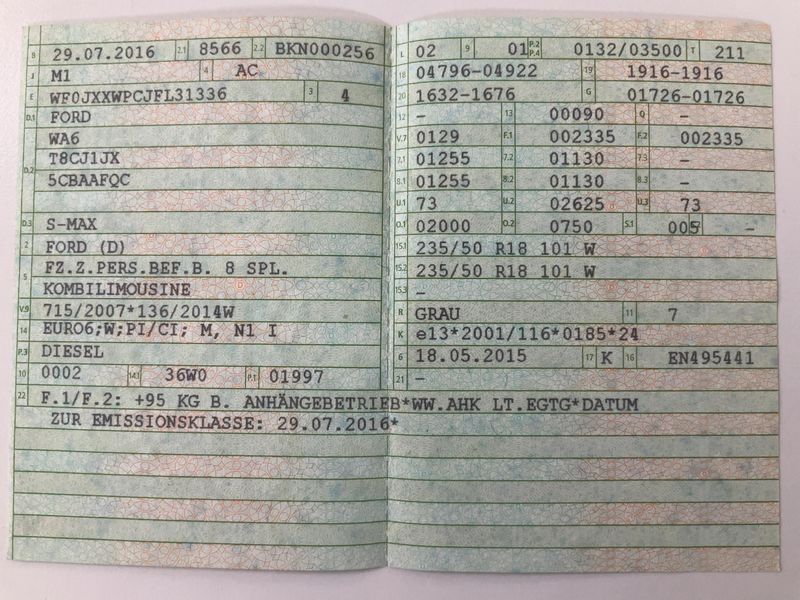 B 29.07.2016 2.1 8566 2.2 BKN000256
J M1 4 AC
E WF0JXXWPCJFL31336 3 4
D.1 FORD
D.2 WA6
T8CJ1JX
5CBAAFQC
D.3 S-MAX
2 FORD (D)
5 FZ.Z.PERS.BEF.B. 8 SPL.
KOMBILIMOUSINE
V.9 715/2007*136/2014W
14 EURO6;W;PI/CI; M, N1 I
P.3 DIESEL
10 0002 14.1 36W0 P.1 01997
L 02 9 01 P.2 P.4 0132/03500 T 211
18 04796-04922 19 1916-1916
20 1632-1676 G 01726-01726
12 - 13 00090 Q -
V.7 0129 F.1 002335 F.2 002335
7.1 01255 7.2 01130 7.3 -
8.1 01255 8.2 01130 8.3 -
U.1 73 U.2 02625 U.3 73
O.1 02000 O.2 0750 S.1 005 -
15.1 235/50 R18 101 W
15.2 235/50 R18 101 W
15.3 -
R GRAU 11 7
K e13*2001/116*0185*24
6 18.05.2015 17 K 16 EN495441
21 -
22 F.1/F.2: +95 KG B. ANHÄNGEBETRIEB*WW.AHK LT.EGTG*DATUM
ZUR EMISSIONSKLASSE: 29.07.2016*